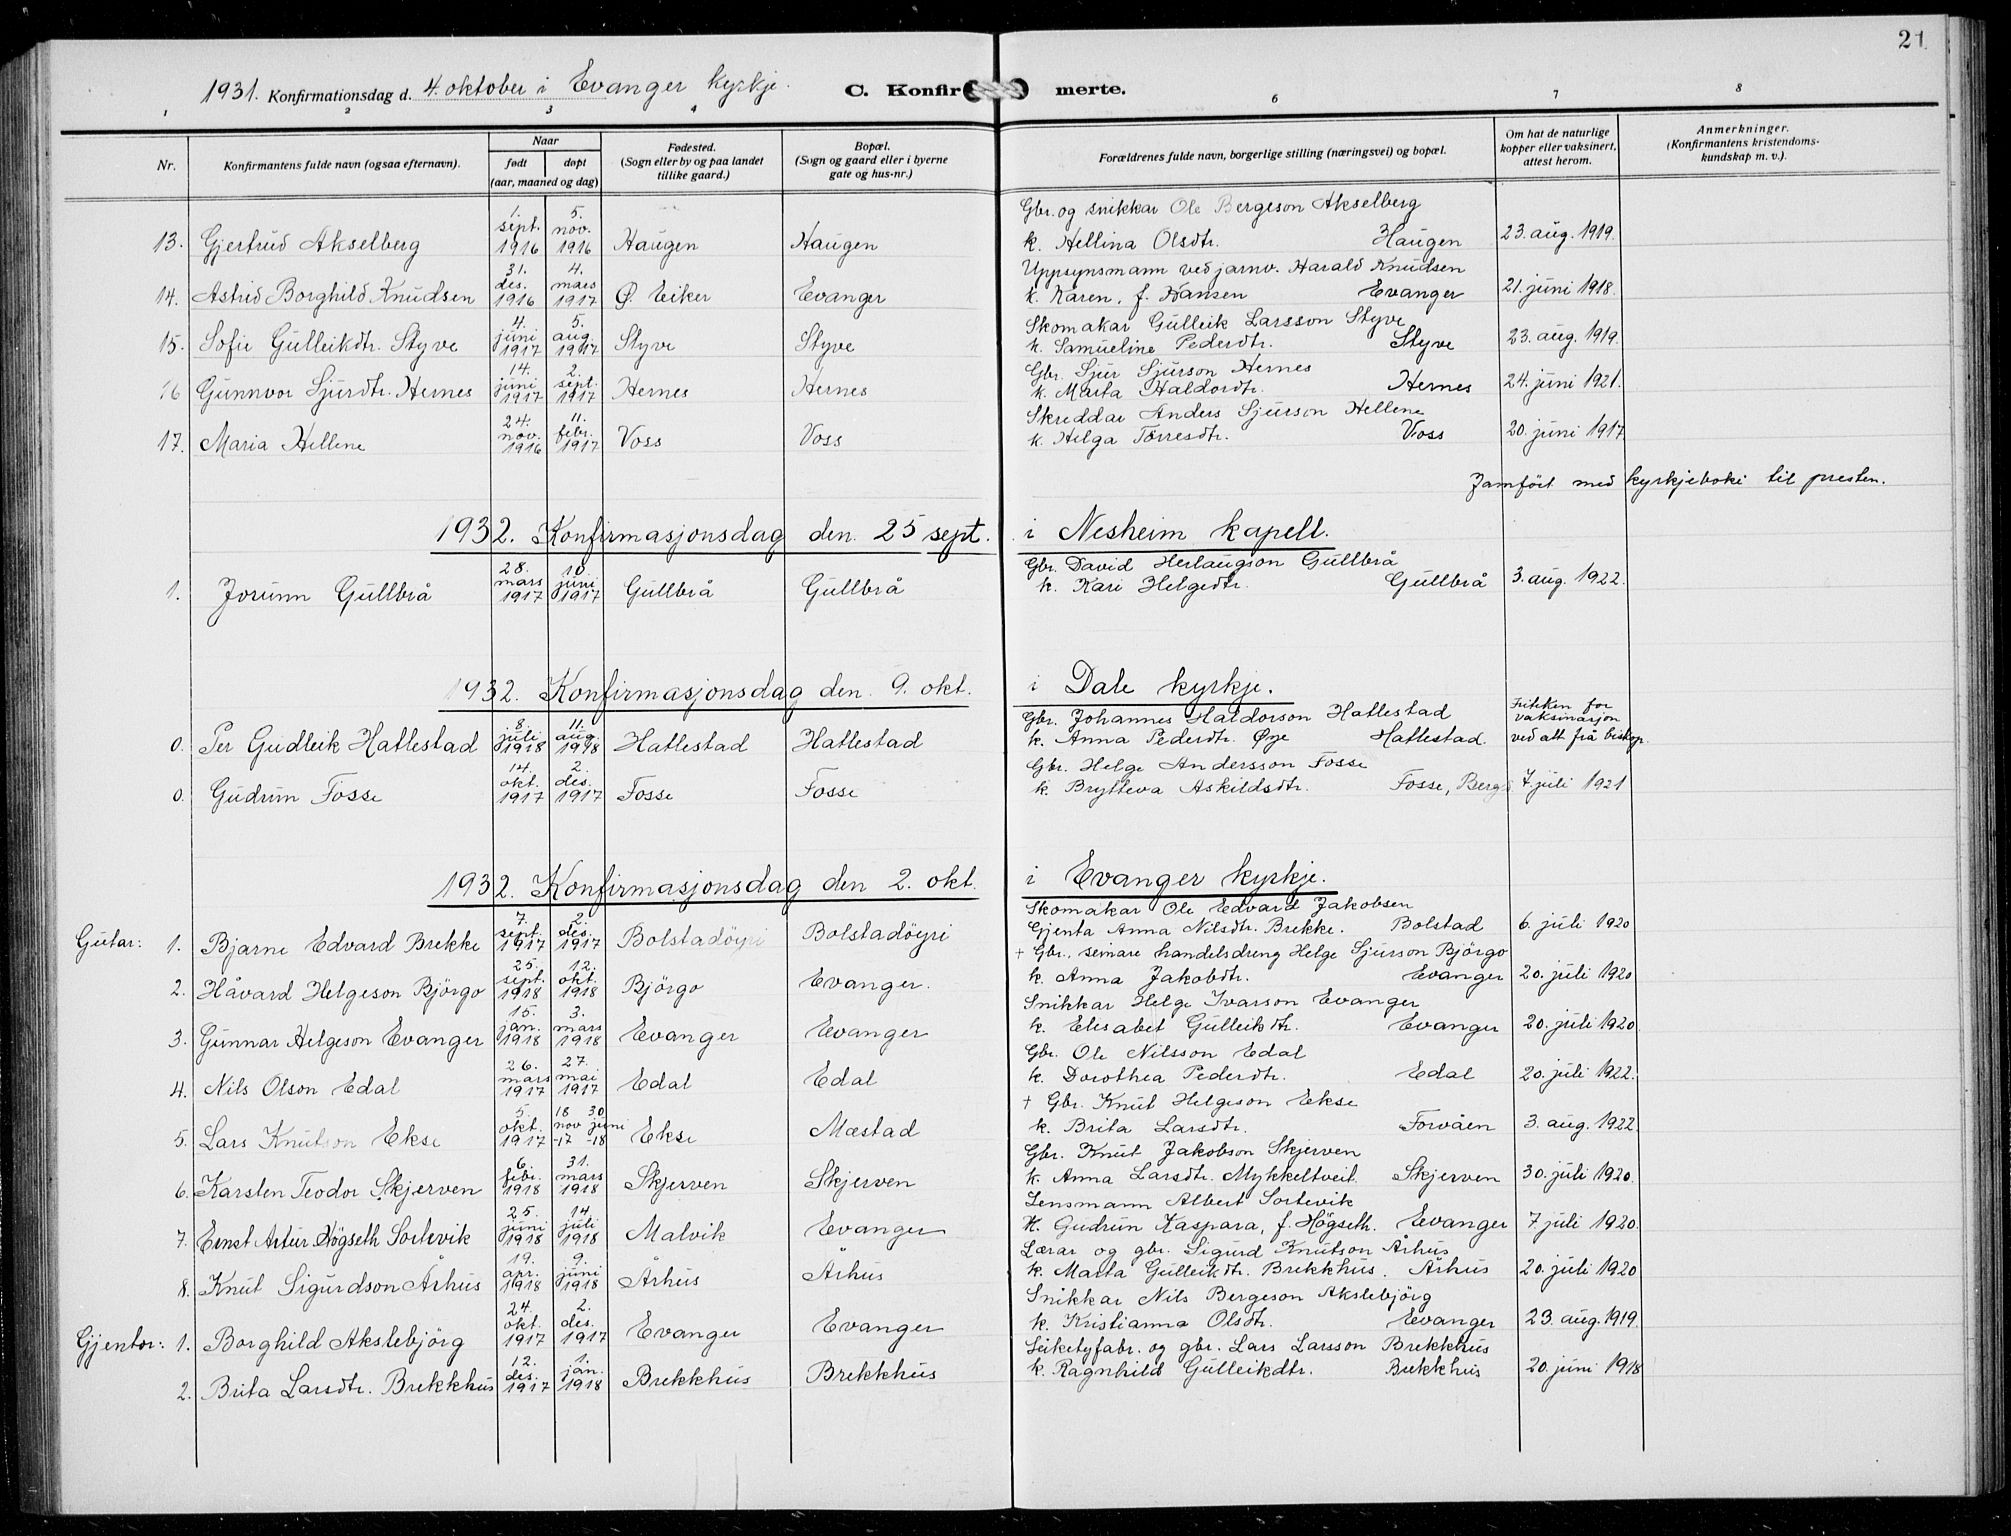 21
1931. Konfirmationsdag d. 4. oktober i Evanger kyrkje. C. Konfirmerte.
1 2 3 4 6 7 8
Nr. Konfirmantens fulde navn (ogsaa efternavn). Naar født døpt (aar, maaned og dag) Fødested. (Sogn eller by og paa landet tillike gaard.) Bopæl. (Sogn og gaard eller i byerne gate og hus-nr.) Forældrenes fulde navn, borgerlige stilling (næringsvei) og bopæl. Om hat de naturlige kopper eller vaksinert, attest herom. Anmerkninger. (Konfirmantens kristendoms-kundskap m. v.).
Gbr. og snikkar Ole Bergeson Akselberg
13. Gjertrud Akselberg 1. sept. 1916 5. nov. 1916 Haugen Haugen k. Hellina Olsdtr. Haugen 23. aug. 1919.
Uppsynsmann ved jarnv. Harald Knudsen
14. Astrid Borghild Knudsen 31. des. 1916 4. mars 1917 Ø. Eiker Evanger k. Karen, f. Hansen Evanger 21. juni 1918.
Skomakar Gulleik Larsson Styve
15. Sofie Gulleikdtr. Styve 4. juni 1917 5. aug. 1917 Styve Styve k. Samueline Pedersdtr. Styve 23. aug. 1919.
Gbr. Sjur Sjurson Hernes
16 Gunnvor Sjurdtr. Hernes 14. juni 1917 2. sept. 1917 Hernes Hernes k. Marta Haldordtr. Hernes 24. juni 1921.
Skreddar Anders Sjurson Hellene
17. Maria Hellene 24. nov. 1916 11. febr. 1917 Voss Voss k. Helga Torresdtr. Voss 20. juni 1917
Jamført med kyrkjeboki til presten.
1932. Konfirmasjonsdag den 25 sept. i Nesheim kapell.
Gbr. David Herlaugson Gullbrå
1. Jorunn Gullbrå 28. mars 1917 10. juni 1917 Gullbrå Gullbrå k. Kari Helgedtr. Gullbrå 3. aug. 1922.
1932. Konfirmasjonsdag den 9. okt. i Dale kyrkje.
Gbr. Johannes Haldorson Hatlestad
0. Per Gudleik Hatlestad 8. juli 1918 11. aug. 1918 Hatlestad Hatlestad k. Anna Pederdtr. Øye Hatlestad. Fritken for vaksinasjon ved att frå biskop.
Gbr. Helge Andersson Fosse
0. Gudrun Fosse 14. okt. 1917 2. des. 1917 Fosse Fosse k. Brytteva Askildsdtr. Fosse, Berg 7. juli 1921
1932. Konfirmasjonsdag den 2. okt. i Evanger kyrkje.
Skomakar Ole Edvard Jakobsen
Gutar: 1. Bjarne Edvard Brekke 7. sept. 1917 2. des. 1917 Bolstadöyri Bolstadöyri Gjenta Anna Nilsdtr. Brekke. Bolstad 6. juli 1920
+ Gbr., seinare handelsdreng Helge Sjurson Björgo
2. Håvard Helgeson Björgo 25. sept. 1918 12. okt. 1918 Björgo Evanger. k. Anna Jakobdtr. Evanger 20. juli 1920
Snikkar Helge Ivarson Evanger
3. Gunnar Helgeson Evanger 15. jan. 1918 3. mars 1918 Evanger Evanger k. Elisabet Gulleikdtr. Evanger 20. juli 1920.
Gbr. Ole Nilsson Edal
4. Nils Olson Edal 26. mars 1917 27. mai 1917 Edal Edal k. Dorothea Pederdtr. Edal 20. juli 1922.
+ Gbr. Knut Helgeson Ekse
5. Lars Knutson Ekse 5. okt. 1917 18 nov -17 30 juni -18 Ekse Mæstad k. Brita Larsdtr. Forvåen 3. aug. 1922
Gbr. Knut Jakobson Skjerven
6. Karsten Teodor Skjerven 6. febr. 1918 31. mars 1918 Skjerven Skjerven k. Anna Larsdtr. Mykkeltveit Skjerven 30. juli 1920.
Lensmann Albert Sortevik
7. Ernst Artur Högseth Sortevik 25. juni 1918 14. juli 1918 Malvik Evanger K. Gudrun Kaspara, f. Högseth. Evanger 7. juli 1920.
Lærar og gbr. Sigurd Knutson Århus
8. Knut Sigurdson Århus 19. apr. 1918 9. juni 1918 Århus Århus k. Marta Gulleikdtr. Brekkhus. Århus 20. juli 1920
Snikkar Nils Bergeson Akslebjörg
Gjentor: 1. Borghild Akslebjörg 24. okt. 1917 2. des. 1917 Evanger Evanger k. Kristianna Olsdtr. Evanger 23. aug. 1919.
Leiketyfabr. og gbr. Lars Larsson Brekkhus
2. Brita Larsdtr. Brekkhus 12. des. 1917 1. jan. 1918 Brekkhus Brekkhus k. Ragnhild Gulleikdtr. Brekkhus 20. juni 1918